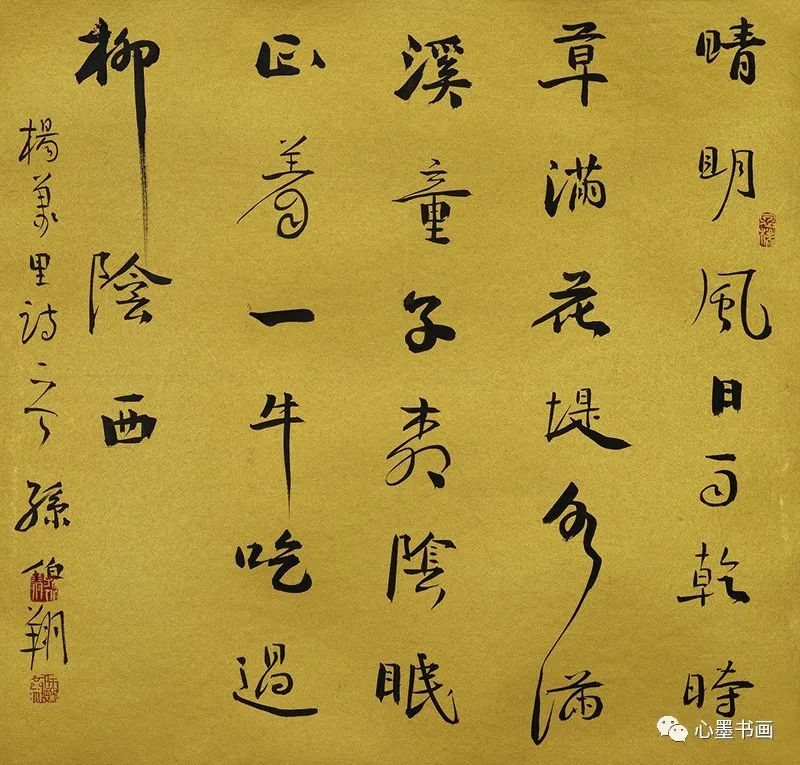 晴明風日雨乾時
草滿花堤水滿
溪童子柳陰眠
正着一牛吃過
柳陰西
楊萬里詩 孫伯翔
心墨书画